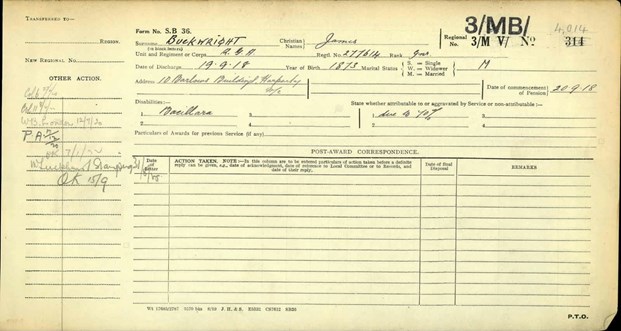 TRANSFERRED TO
REGION.
NEW REGIONAL NO.
OTHER ACTION.
P.A.
OK 15/9
Form No. S.B 36.
Surname BUCKWRIGHT
(in block letters)
Christian Names James
3/MB/ 4,014
Regional No. 3/M V/ No 314
Unit and Regiment or Corps R.G.A
Regtl. No. 277614 Rank Gnr
Date of Discharge 19-9-18 Year of Birth 1873 Marital Status
S. — Single
W. — Widower
M. — Married
M
Address 10 Barlows Buildings
Date of commencement of Pension 20.9.18
Disabilities:
State whether attributable to or aggravated by Service or non-attributable:
due to
Particulars of Awards for previous Service (if any).
POST-AWARD CORRESPONDENCE.
Date of Letter
ACTION TAKEN. NOTE:—In this column are to be entered particulars of action taken before a definite reply can be given, e.g., date of acknowledgment, date of reference to Local Committee or to Records, and date of their reply.
Date of final Disposal
REMARKS
P.T.O.